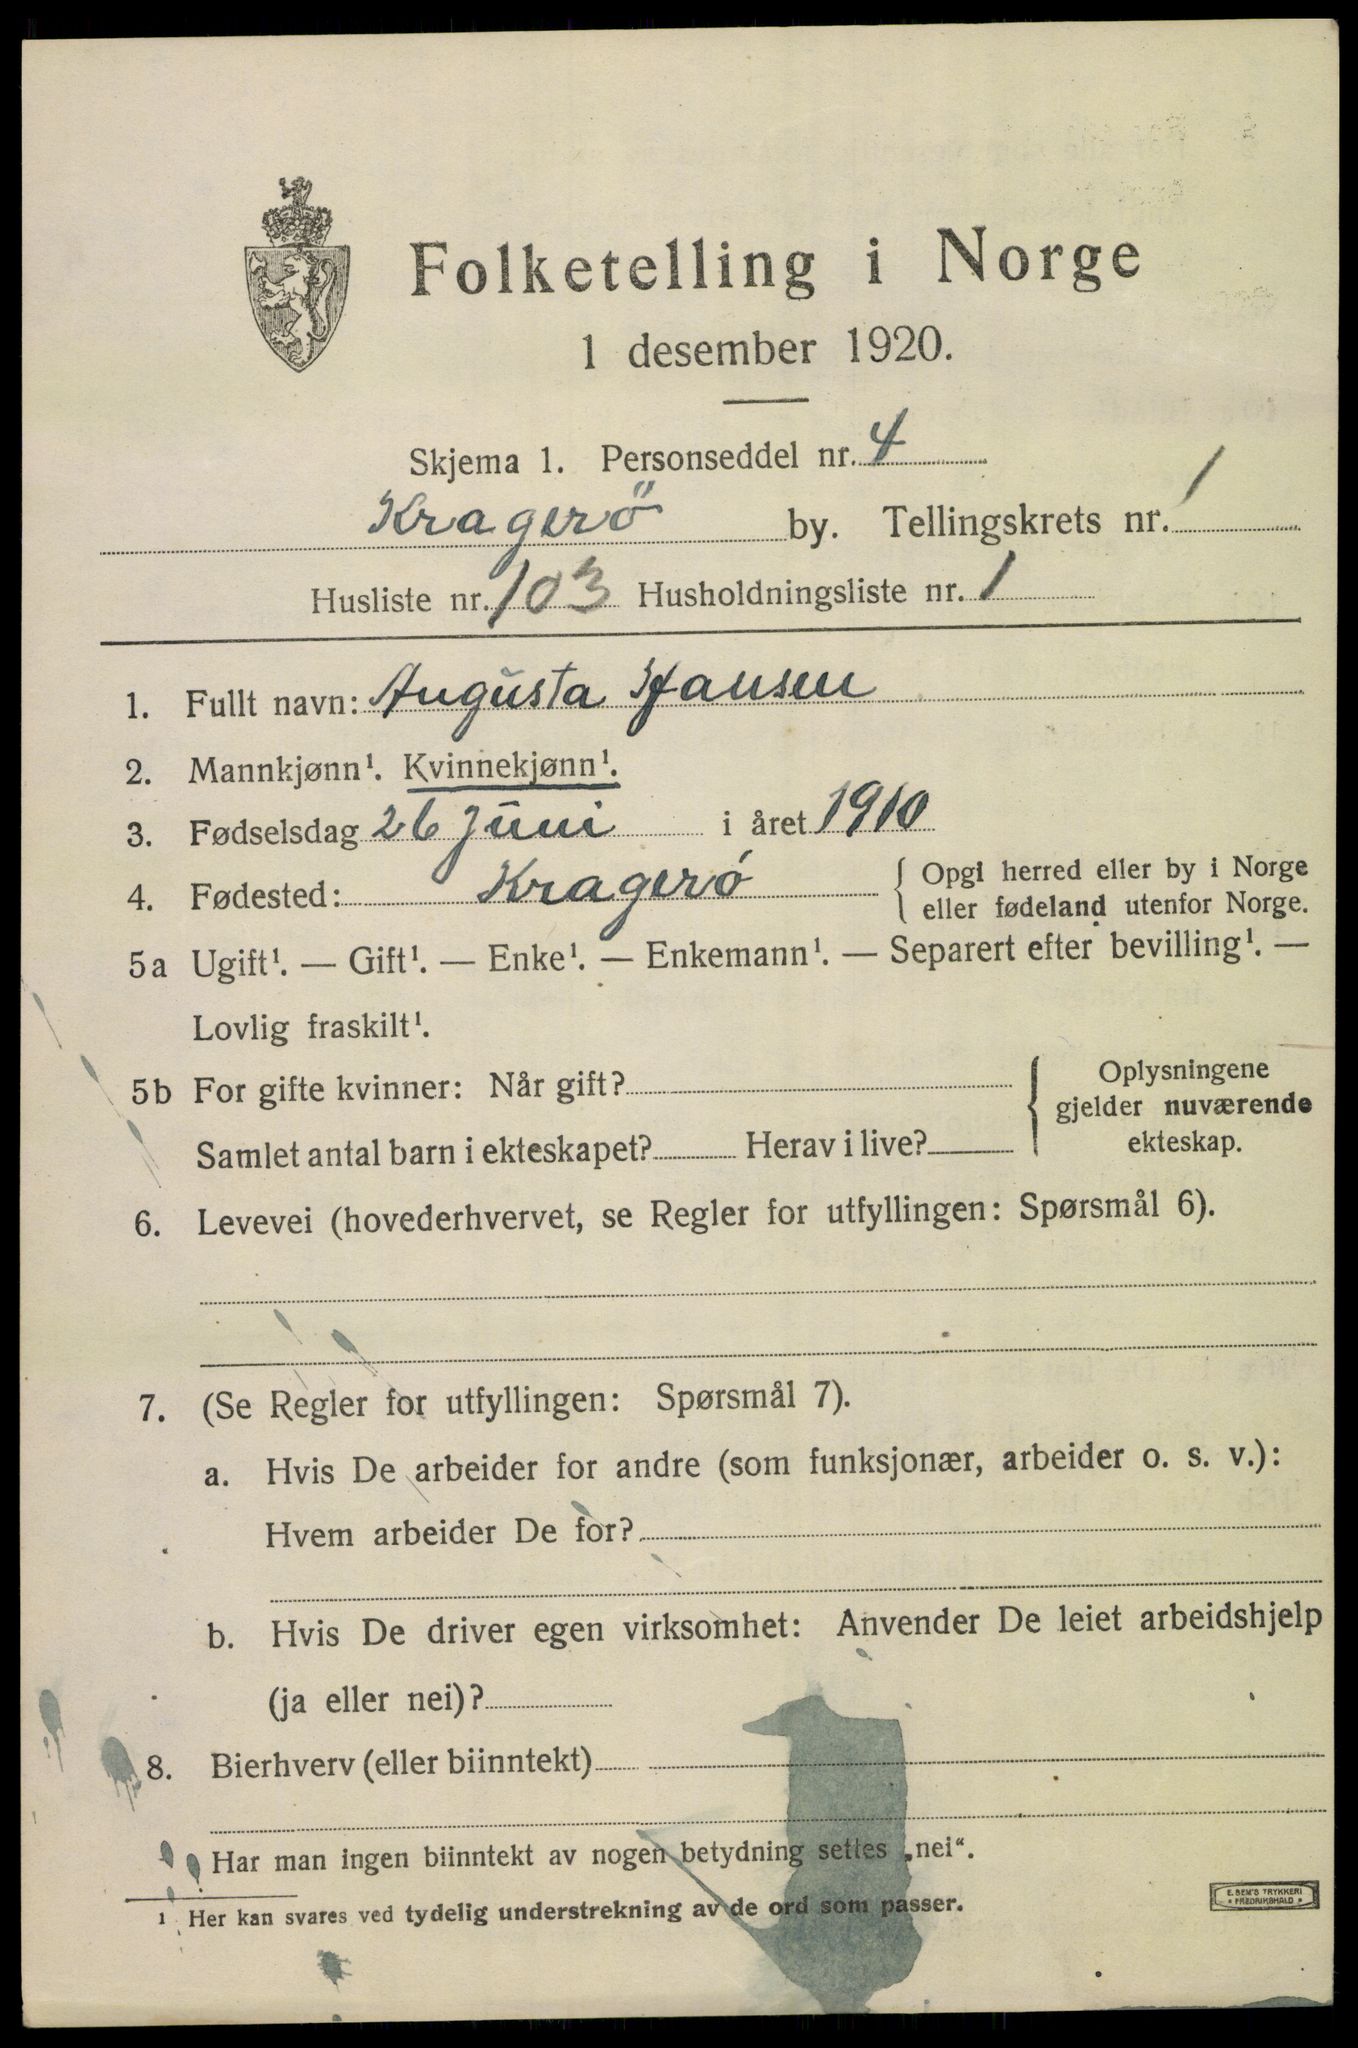 Folketelling i Norge
1 desember 1920.
Skjema 1. Personseddel nr. 4
Kragerö by. Tellingskrets nr. 1
Husliste nr. 103 Husholdningsliste nr. 1
1. Fullt navn: Augusta Hansen
2. Mannkjønn¹. Kvinnekjønn¹.
3. Fødselsdag 26 Juni i året 1910
4. Fødested: Kragerö { Opgi herred eller by i Norge
eller fødeland utenfor Norge.
5a Ugift¹. — Gift¹. — Enke¹. — Enkemann¹. — Separert efter bevilling¹. —
Lovlig fraskilt¹.
5b For gifte kvinner: Når gift?
Samlet antal barn i ekteskapet? Herav i live?
{ Oplysningene
gjelder nuværende
ekteskap.
6. Levevei (hovederhvervet, se Regler for utfyllingen: Spørsmål 6).
7. (Se Regler for utfyllingen: Spørsmål 7).
a. Hvis De arbeider for andre (som funksjonær, arbeider o. s. v.):
Hvem arbeider De for?
b. Hvis De driver egen virksomhet: Anvender De leiet arbeidshjelp
(ja eller nei)?
8. Bierhverv (eller biinntekt)
Har man ingen biinntekt av nogen betydning settes „nei“.
1 Her kan svares ved tydelig understrekning av de ord som passer.
E. SEM'S TRYKKERI
• FREDRIKSHALD •